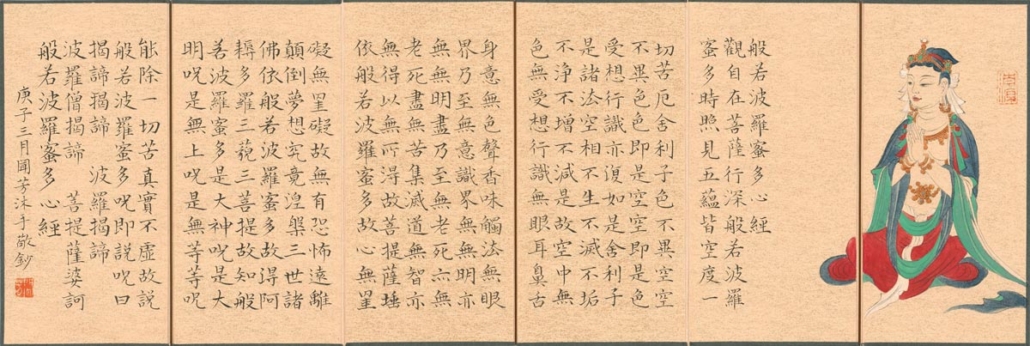 般若波羅蜜多心經
觀自在菩薩行深般若波羅
蜜多時照見五蘊皆空度一
切苦厄舍利子色不異空空
不異色色即是空空即是色
受想行識亦復如是舍利子
是諸法空相不生不滅不垢
不淨不增不減是故空中無
色無受想行識無眼耳鼻舌
身意無色聲香味觸法無眼
界乃至無意識界無無明亦
無無明盡乃至無老死亦無
老死盡無苦集滅道無智亦
無得以無所得故菩提薩埵
依般若波羅蜜多故心無罣
礙無罣礙故無有恐怖遠離
顛倒夢想究竟涅槃三世諸
佛依般若波羅蜜多故得阿
耨多羅三藐三菩提故知般
若波羅蜜多是大神呪是大
明呪是無上呪是無等等呪
能除一切苦真實不虛故說
般若波羅蜜多呪即說呪曰
揭諦揭諦　波羅揭諦
波羅僧揭諦　菩提薩婆訶
般若波羅蜜多心經
庚子三月圓芳沐手敬鈔